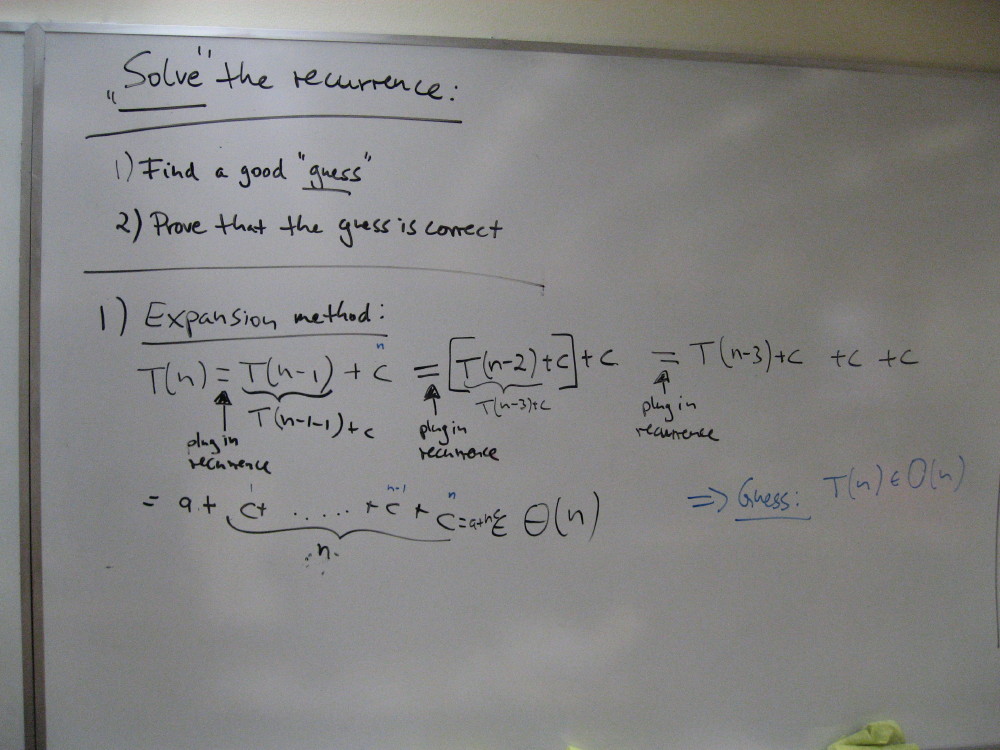 "Solve" the recurrence:
1) Find a good "guess"
2) Prove that the guess is correct
1) Expansion method:
n
T(n) = T(n-1) + c = [T(n-2)+c]+c = T(n-3)+c +c +c
T(n-1-1)+c T(n-3)+c
plug in recurrence plug in recurrence plug in recurrence
1 n-1 n
= a + c+ ...... + c + c = a+nc ∈ Θ(n)
n
⇒ Guess: T(n) ∈ O(n)